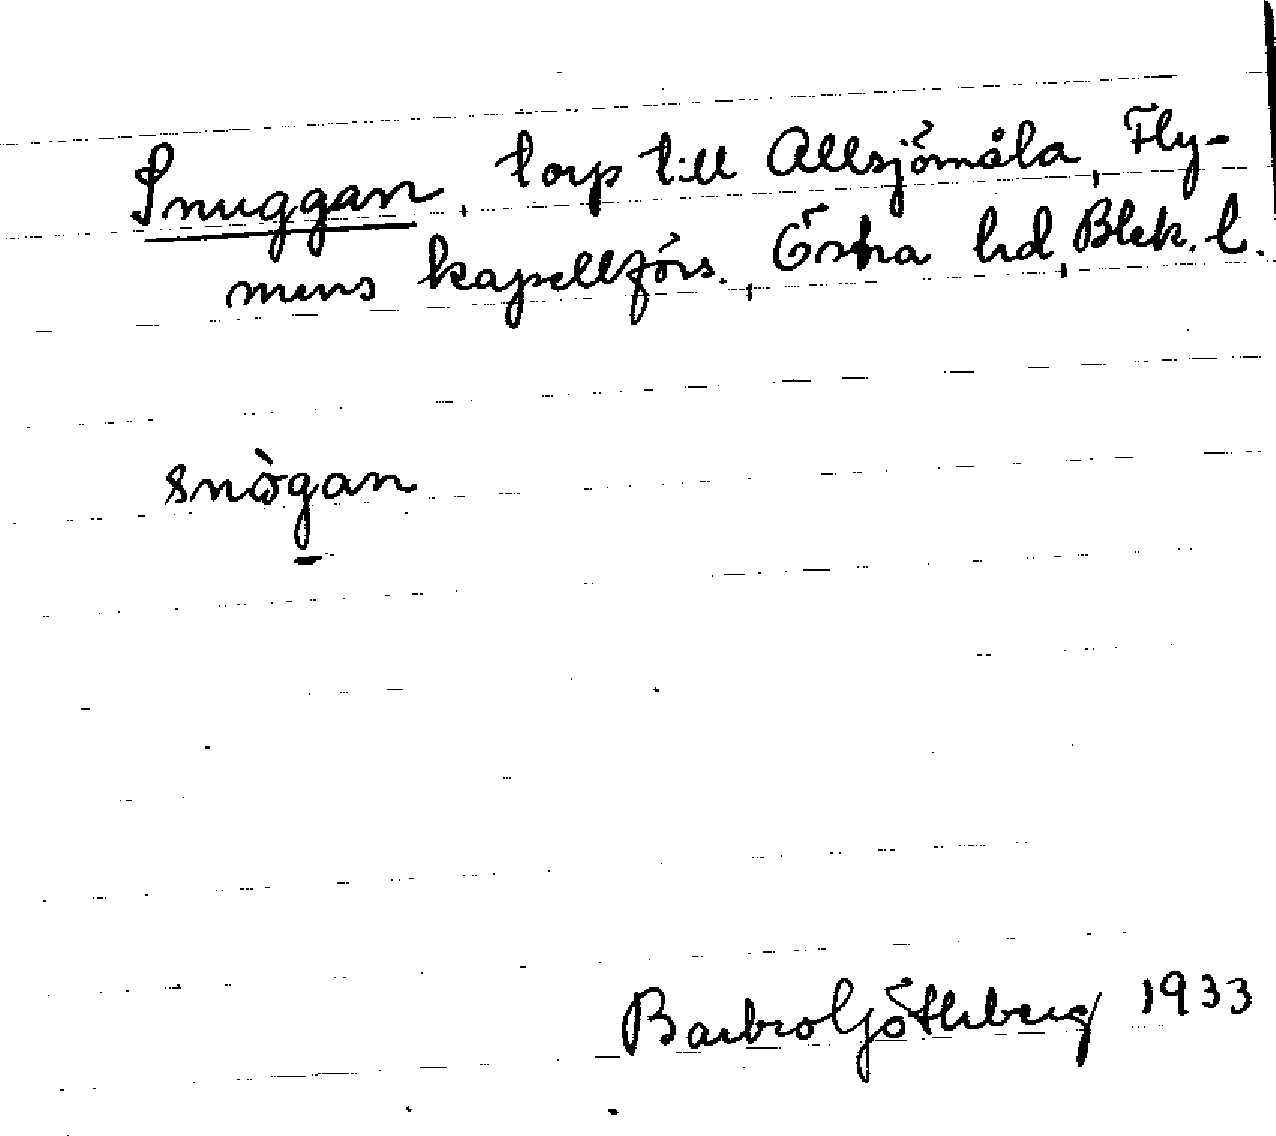 Snuggan, torp till Allsjömåla, Fly-
mens kapellförs., Östra hd, Blek. l.
snògan
Barbro Göthberg 1933